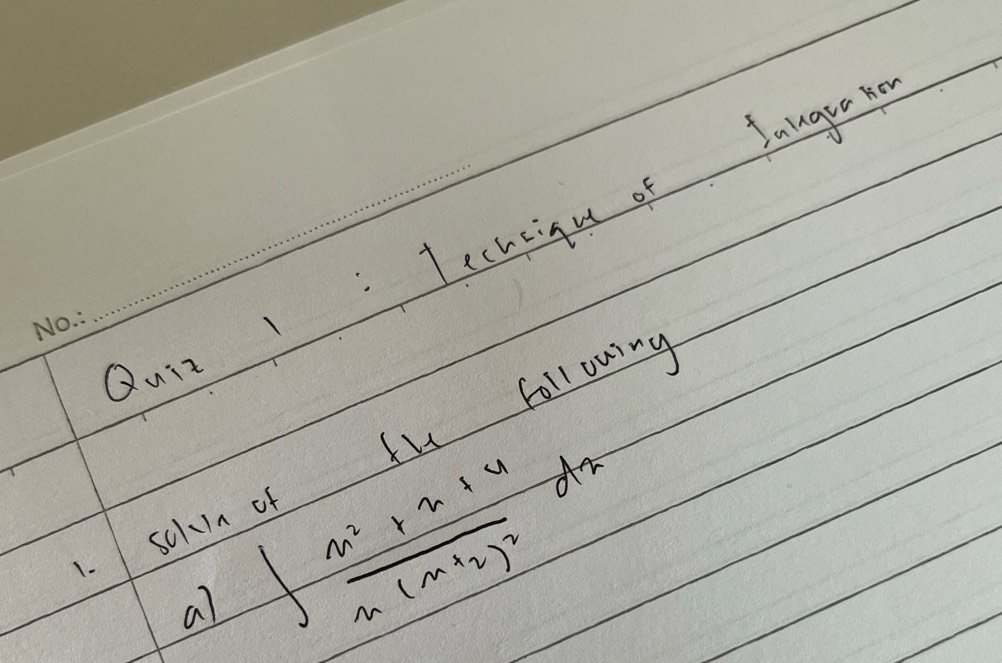 No.:
Quiz 1 : Technique of Integration
1. solvin of the following
a) ∫ x² + x + 4 / x (x+2)² dx